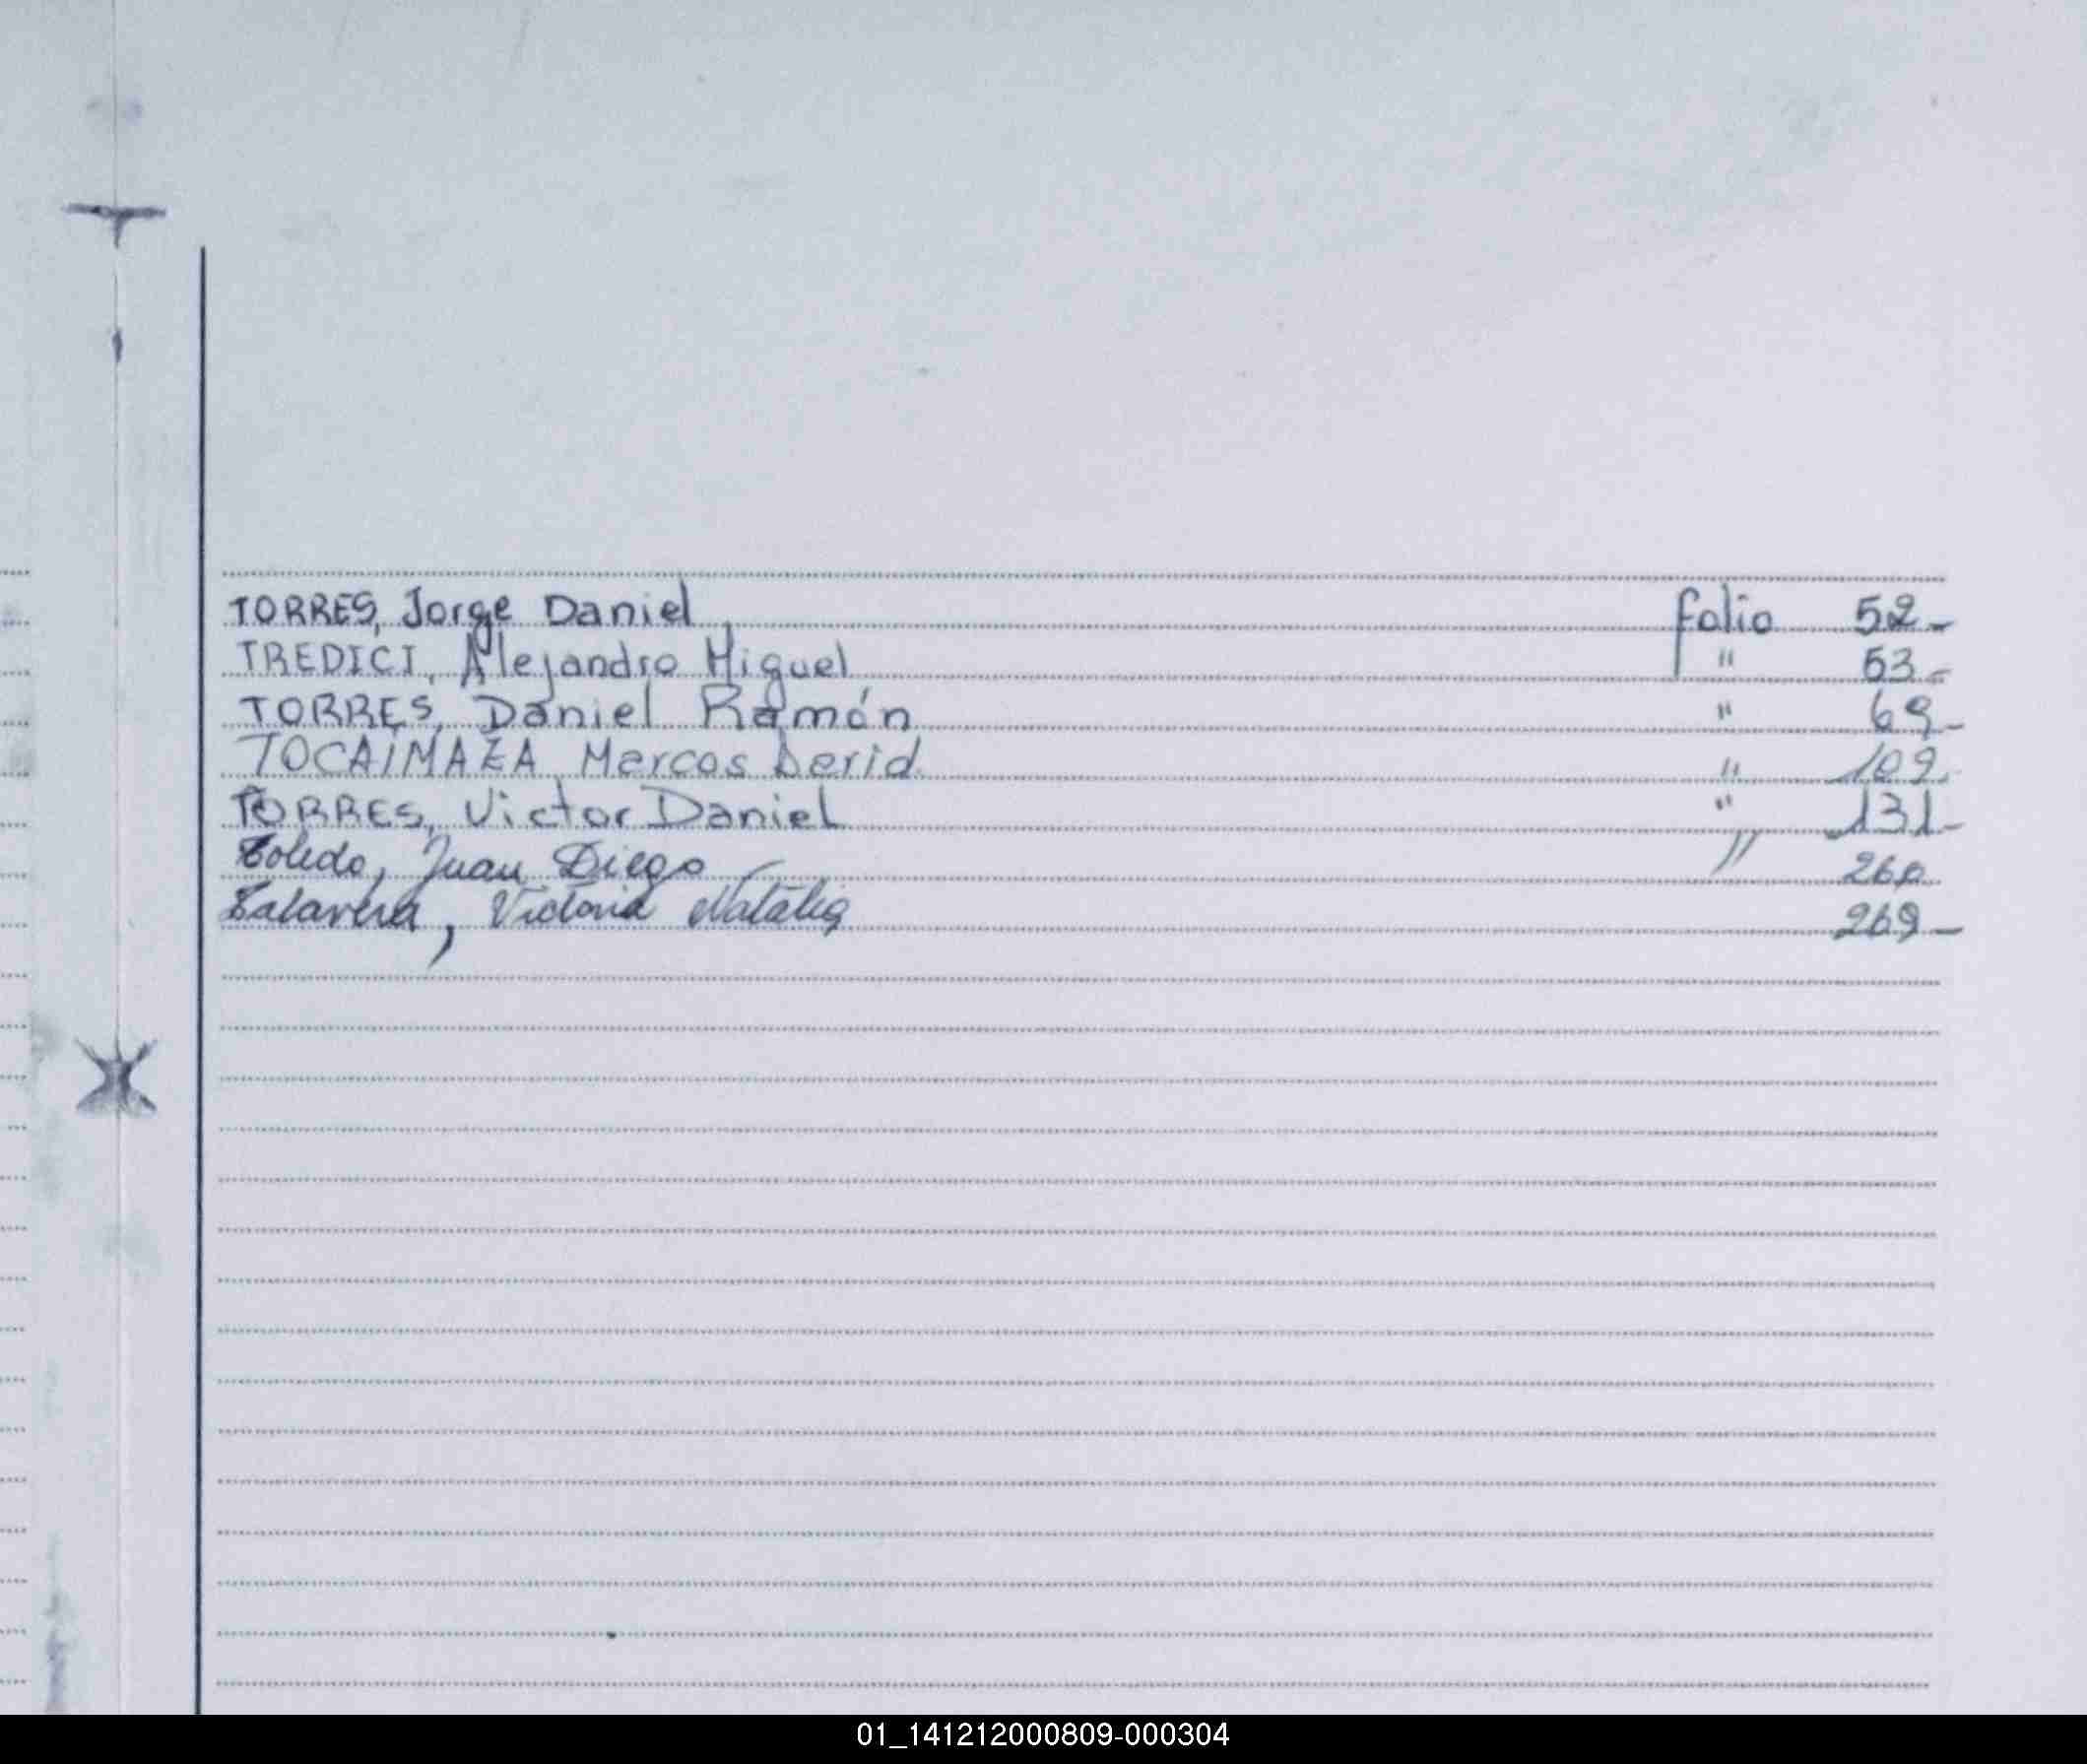 TORRES, Jorge Daniel folio 52-
TREDICI, Alejandro Miguel " 53-
TORRES, Daniel Ramón " 69-
TOCAIMAZA Marcos David " 109.
TORRES, Victor Daniel " 131-
Toledo, Juan Diego " 260
Talavera, Victoria Natalia 269-
01_141212000809-000304